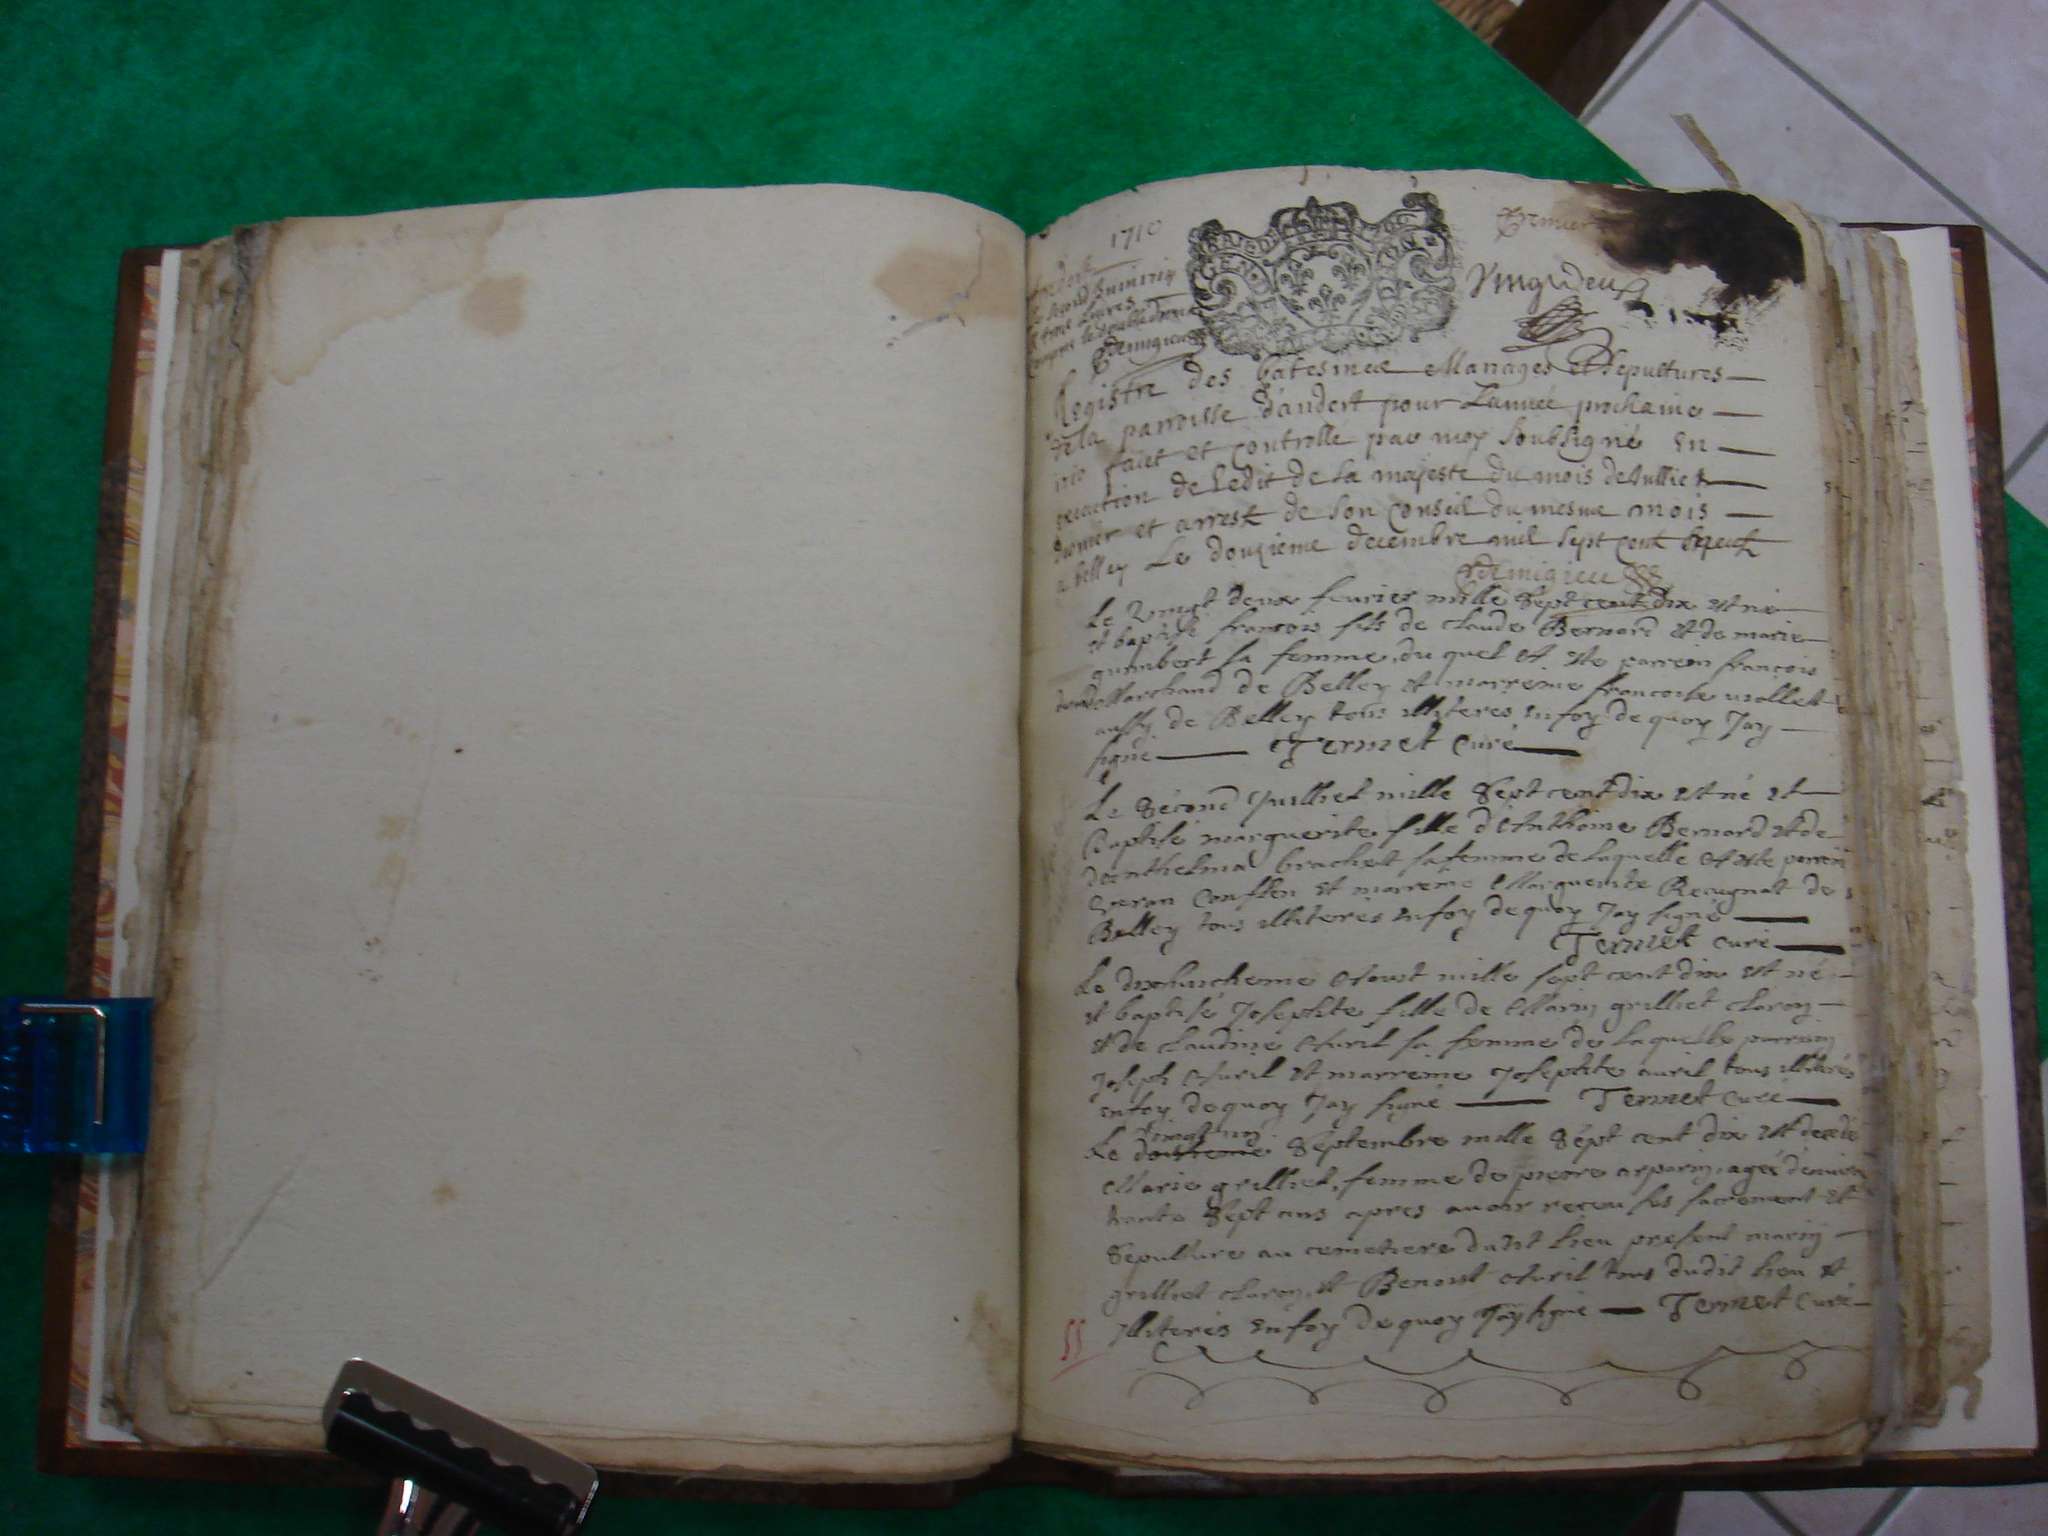 1710
Vingt deux
Demigieu
Registre des batesmes Mariages et Sepultures
de la parroisse d'andert pour L'année prochaine
1710 faict et controllé par moy soubsigné en
execution de ledit de sa majesté du mois de Iulliet
dernier et arrest de son Conseil du mesme mois
a belley Le douzieme decembre mil sept cent neuf
Demigieu
Le vingt deux feurier mille sept cent dix est né
et baptisé françois fils de claude Bernard et de marie
gumbert sa femme, du quel A este parrein françois
Marchand de Belley et marreme francoise uiollet
aussy de Belley tous illiteres en foy de quoy Jay
signé Termet Curé
Le second Juilliet mille sept cent dix est né et
Baptisé marguerite fille d'Anthoine Bernard et de
danthelma brachet sa femme de laquelle A este parrein
et marreme Marguerite de
Belley tous illiteres en foy de quoy Jay signé
Termet curé
Le dixhuictieme Aoust mille sept cent dix est né
et baptisé Josephte fille de Marin grilliet claron
et de claudine Auril sa femme de laquelle parrein
Joseph Auril et marreme Josephte auril tous illiterés
en foy de quoy Jay signé Termet curé
vingt un
Le septembre mille sept cent dix est decedé
Marie grilliet, femme de pierre arparin, agée d'enuiron
trante sept ans apres auoir receu ses sacrement et
sepulture au cemetiere dudit lieu present marin
grilliet claron, et Benoist Auril tous dudit lieu et
Illiteres en foy de quoy Jay signé Termet Curé
55